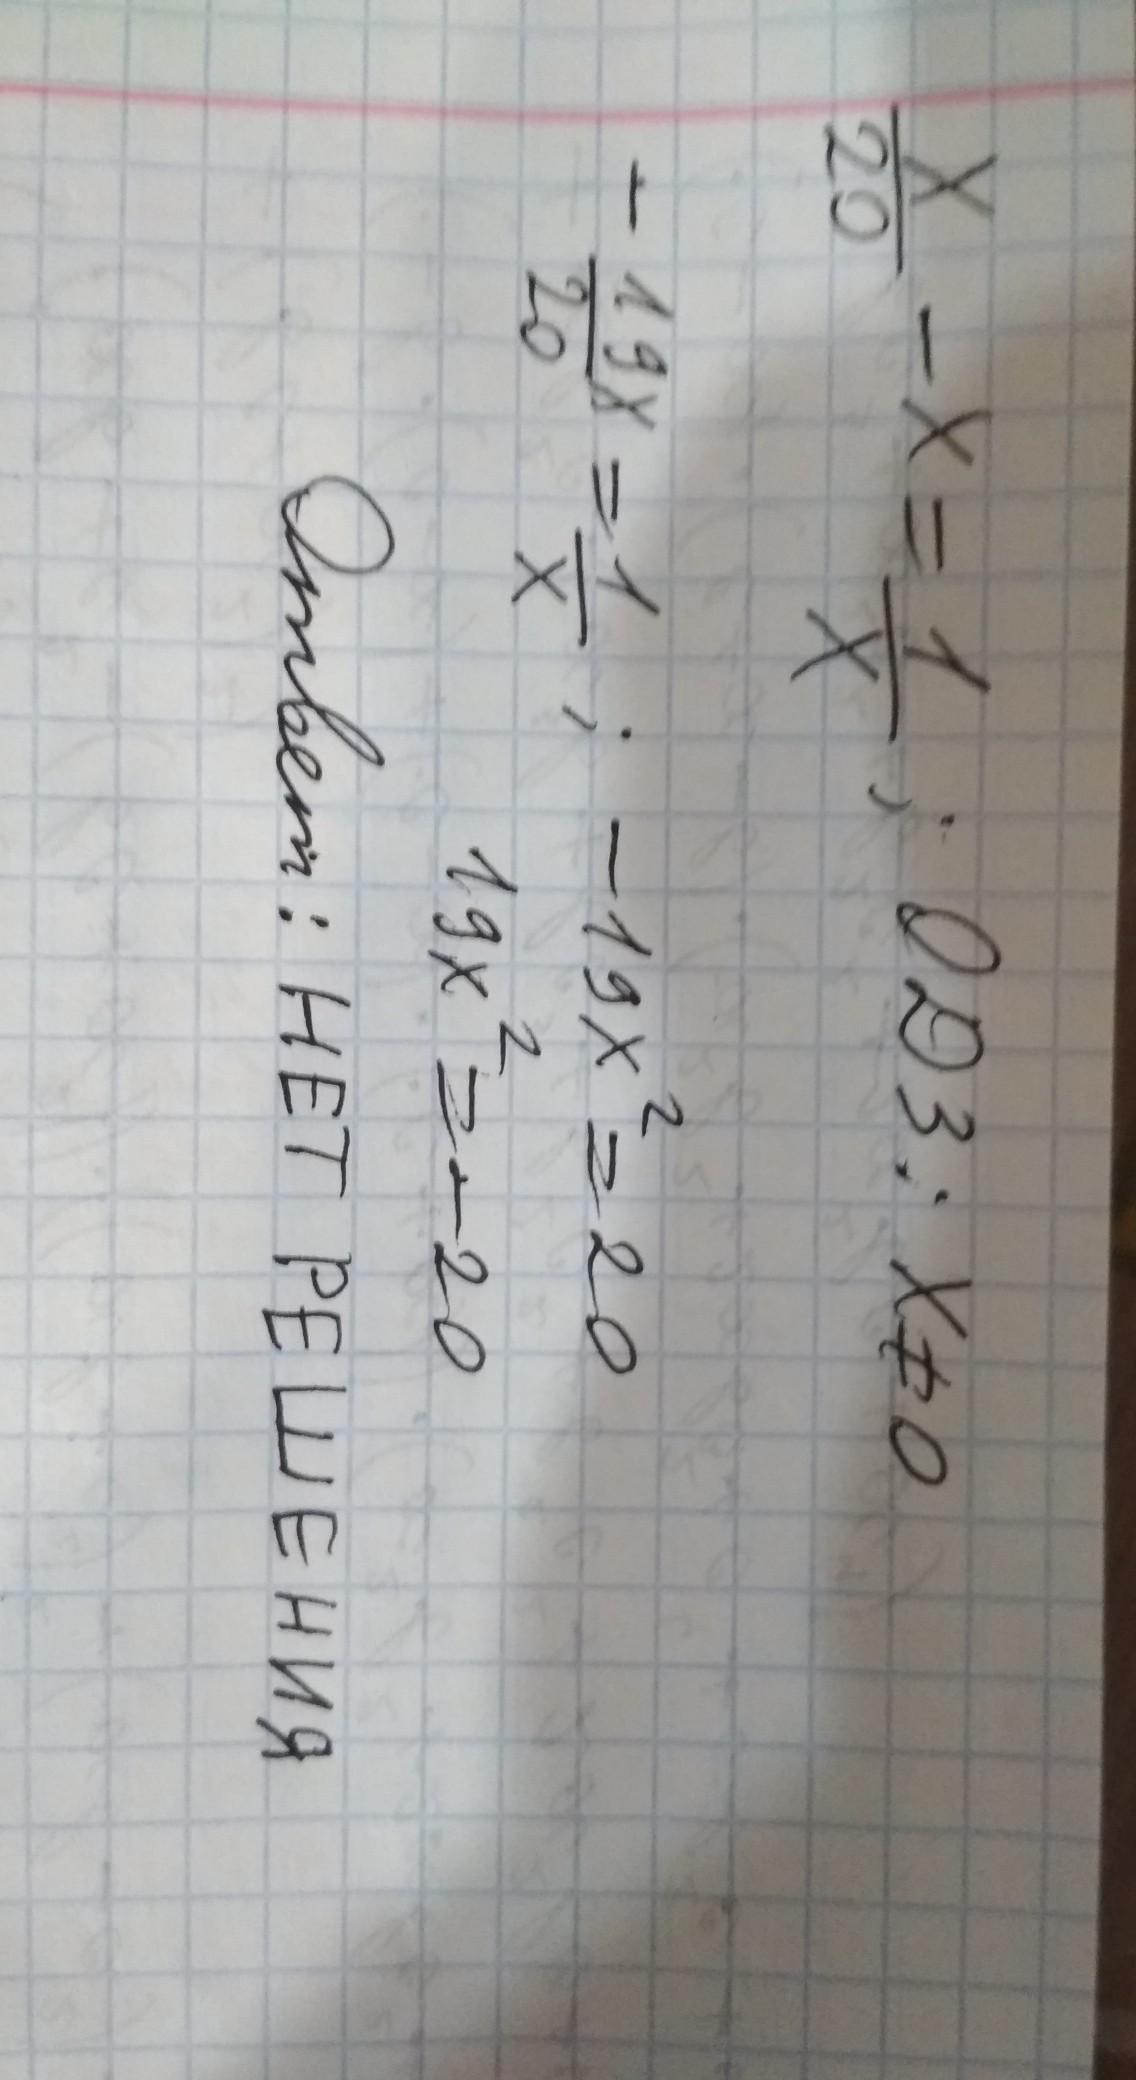 x/20 - x = 1/x ; ОДЗ: x ≠ 0
- 19x/20 = 1/x ; -19x² = 20
19x² = -20
Ответ: НЕТ РЕШЕНИЯ